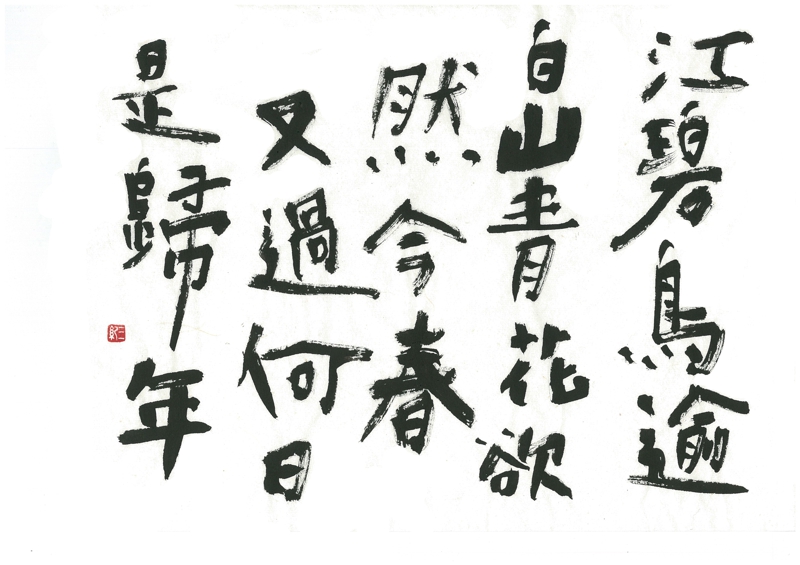 江碧鳥逾
白山青花欲
然今春
又過何日
是歸年